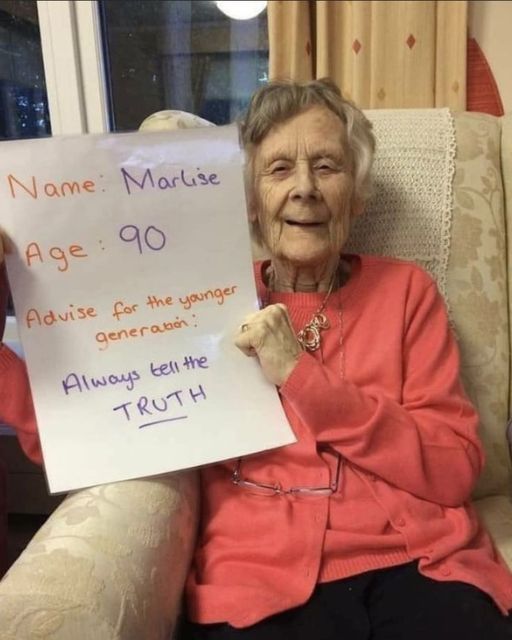 Name: Marlise
Age: 90
Advise for the younger
generation:
Always tell the
TRUTH